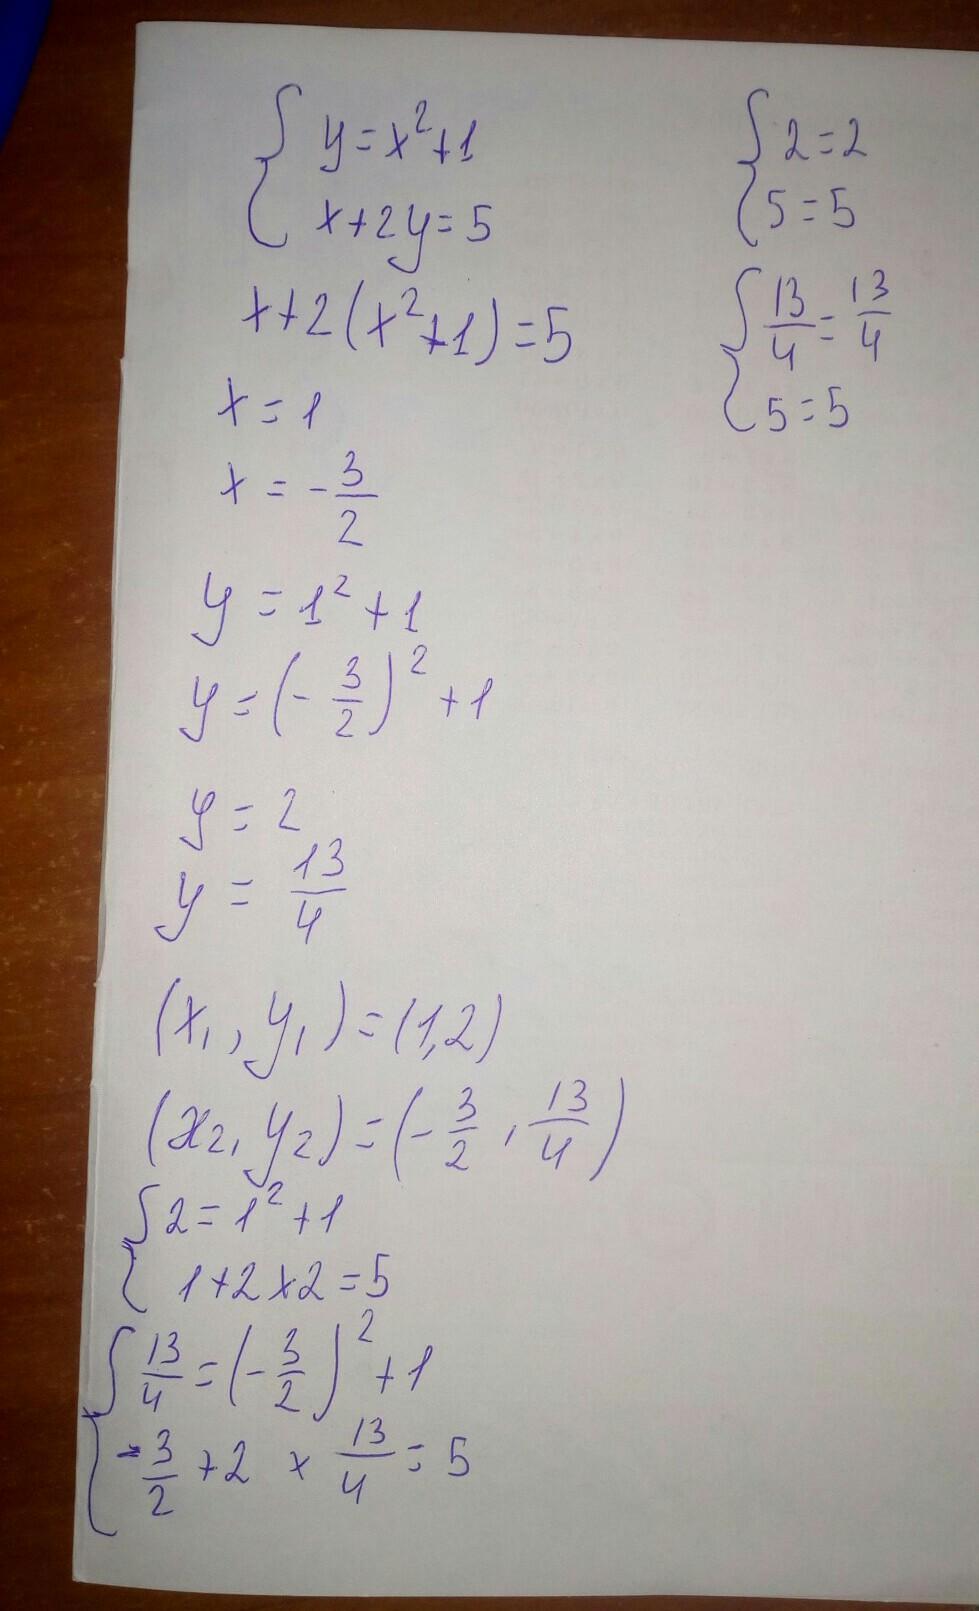 { y = x² + 1
x + 2y = 5
x + 2(x² + 1) = 5
x = 1
x = - 3/2
y = 1² + 1
y = (- 3/2)² + 1
y = 2
y = 13/4
(x₁, y₁) = (1,2)
(x₂, y₂) = (- 3/2, 13/4)
{ 2 = 1² + 1
1 + 2 × 2 = 5
{ 13/4 = (- 3/2)² + 1
- 3/2 + 2 × 13/4 = 5
{ 2 = 2
5 = 5
{ 13/4 = 13/4
5 = 5